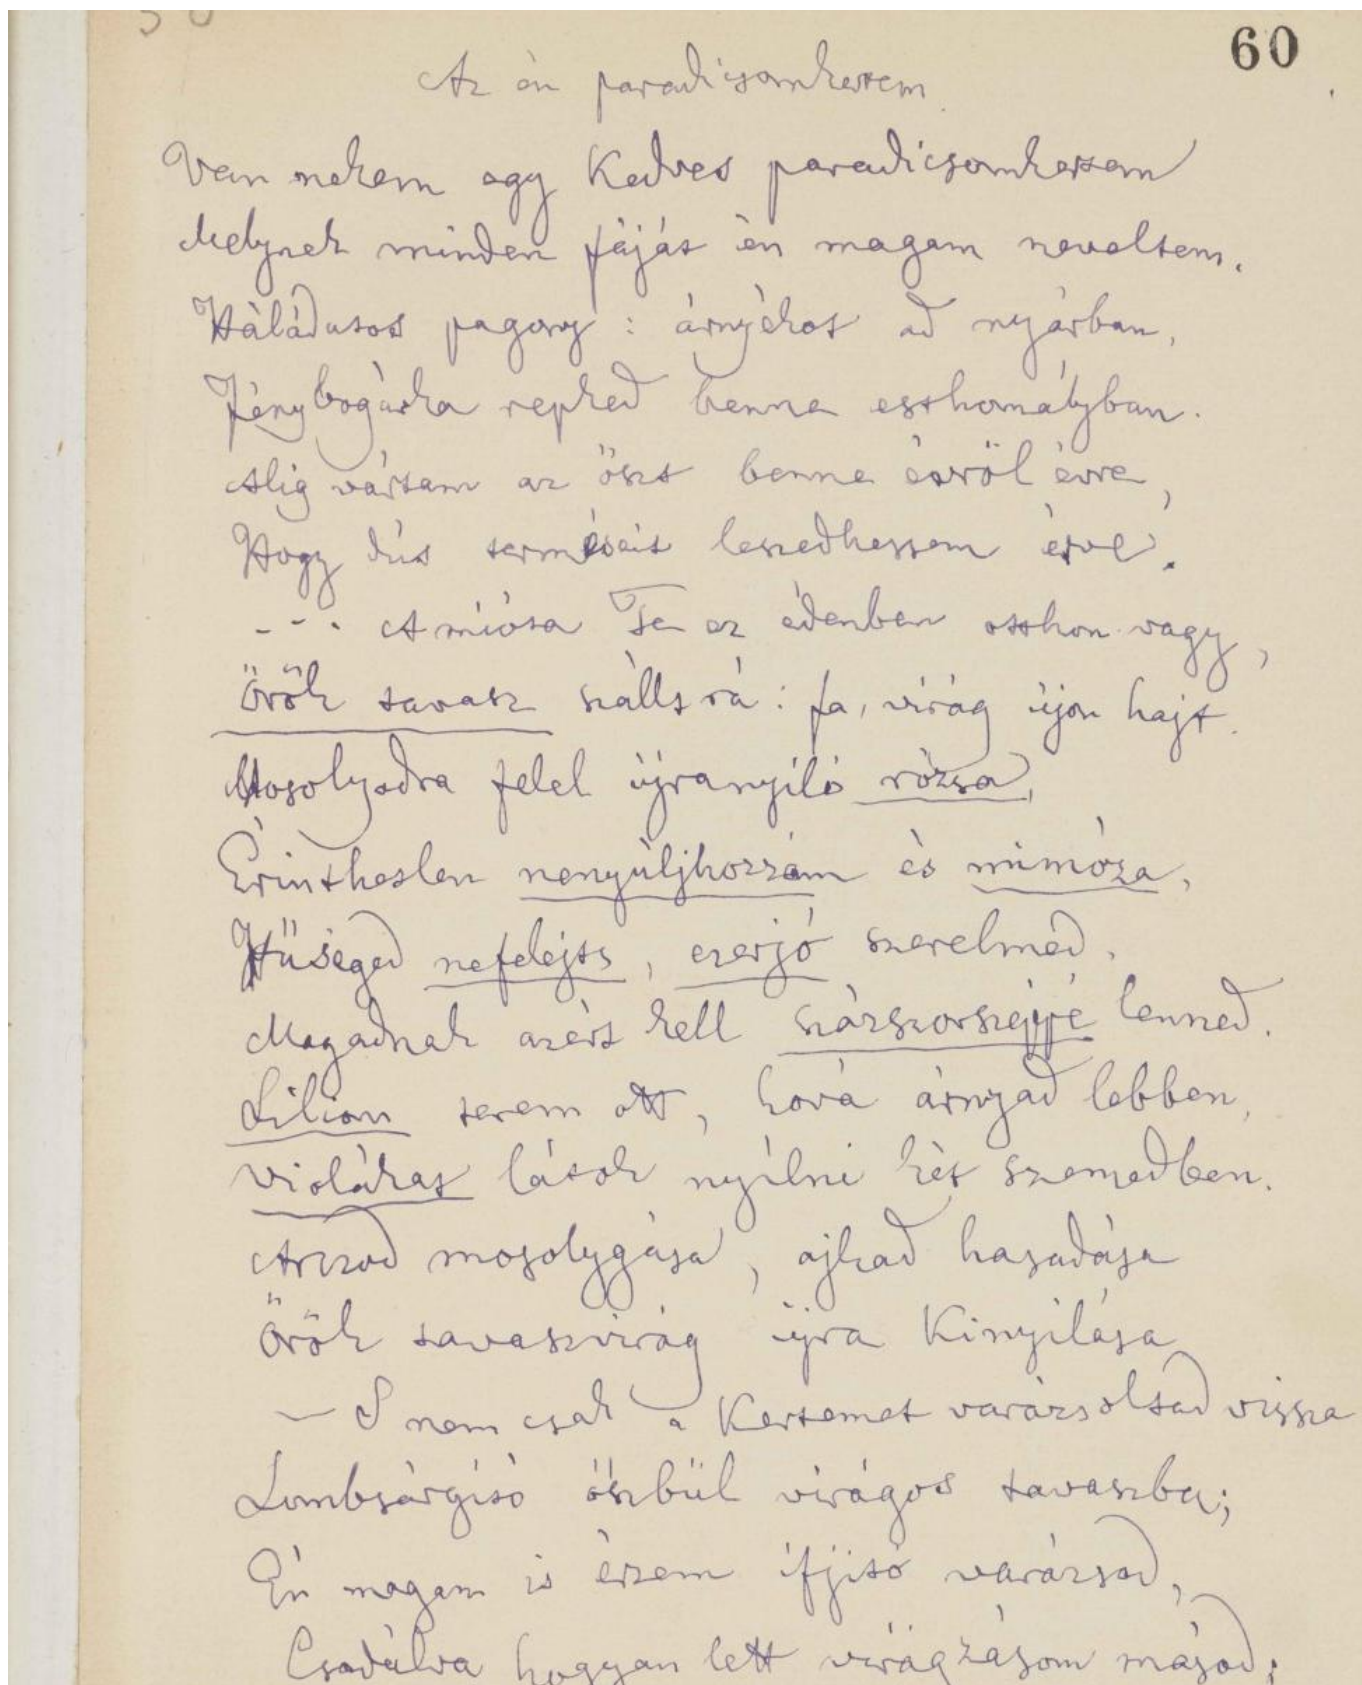 60
Az én paradicsomkertem
Van nekem egy Kedves paradicsomkertem
Melynek minden fáját én magam neveltem.
Háládatos pagony: árnyékot ad nyárban,
Fénybogárka repked benne esthomályban.
Alig vártam az őszt benne évről évre,
Hogy dús termését leszedhessem érve.
--- A mióta Te az édenben otthon vagy,
Örök tavasz szállt rá: fa, virág újon hajt.
Mosolyodra felel újranyiló rózsa,
Érinthetlen nenyúljhozzám és mimóza,
Hűséged nefelejts, ezerjó szerelmed,
Magadnak azért kell százszorszéppé lenned.
Liliom terem ott, hová árnyad lebben,
Violákat látok nyílni két szemedben.
Arczod mosolygása, ajkad hasadása
Örök tavaszvirág újra Kinyilása
– S nem csak a Kertemet varázsoltad vissza
Lombsárgító őszbül virágos tavaszba;
Én magam is érzem ifjító varázsod,
Csodálva hogyan lett virágzásom másod;